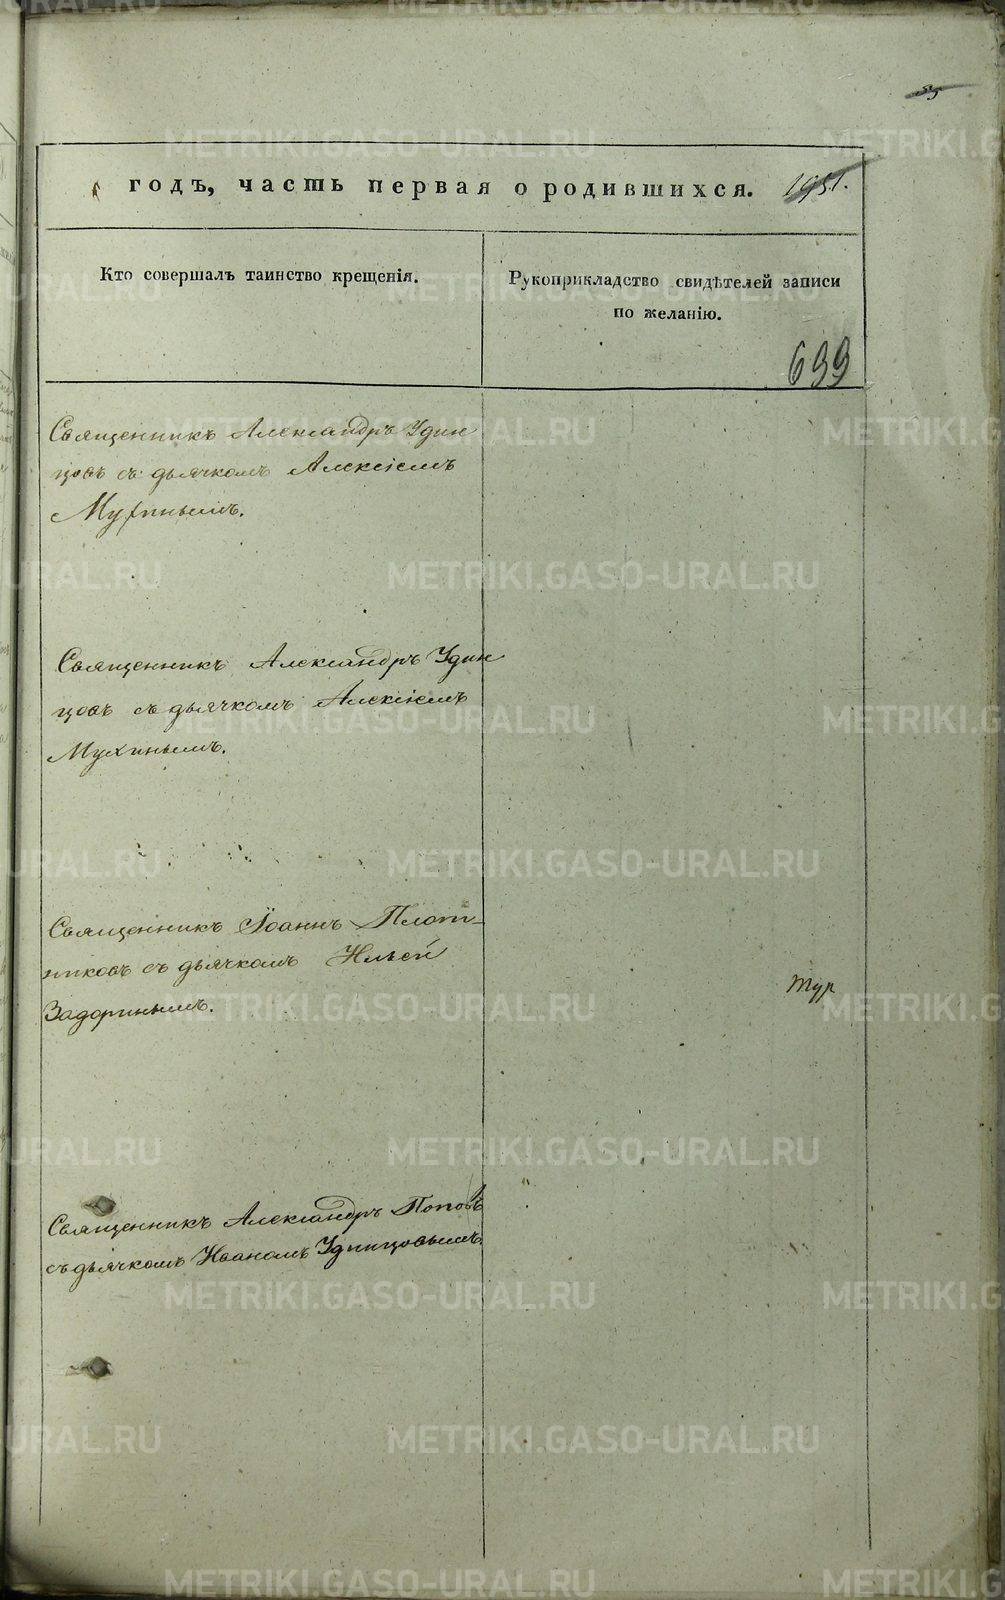 METRIKI.GASO-URAL.RU
годъ, часть первая о родившихся. 1951.
Кто совершалъ таинство крещенія.
Рукоприкладство свидѣтелей записи
по желанію.
699
Священникъ Александръ Удин
цовъ съ дьячкомъ Алексіемъ
Мухинымъ.
Священникъ Александръ Удин
цовъ съ дьячкомъ Алексіемъ
Мухинымъ.
Священникъ Іоаннъ Плот-
никовъ съ дьячкомъ Ильей
Задоринымъ.
тур
Священникъ Александръ Поповъ
съ дьячкомъ Иваномъ Удинцовымъ.